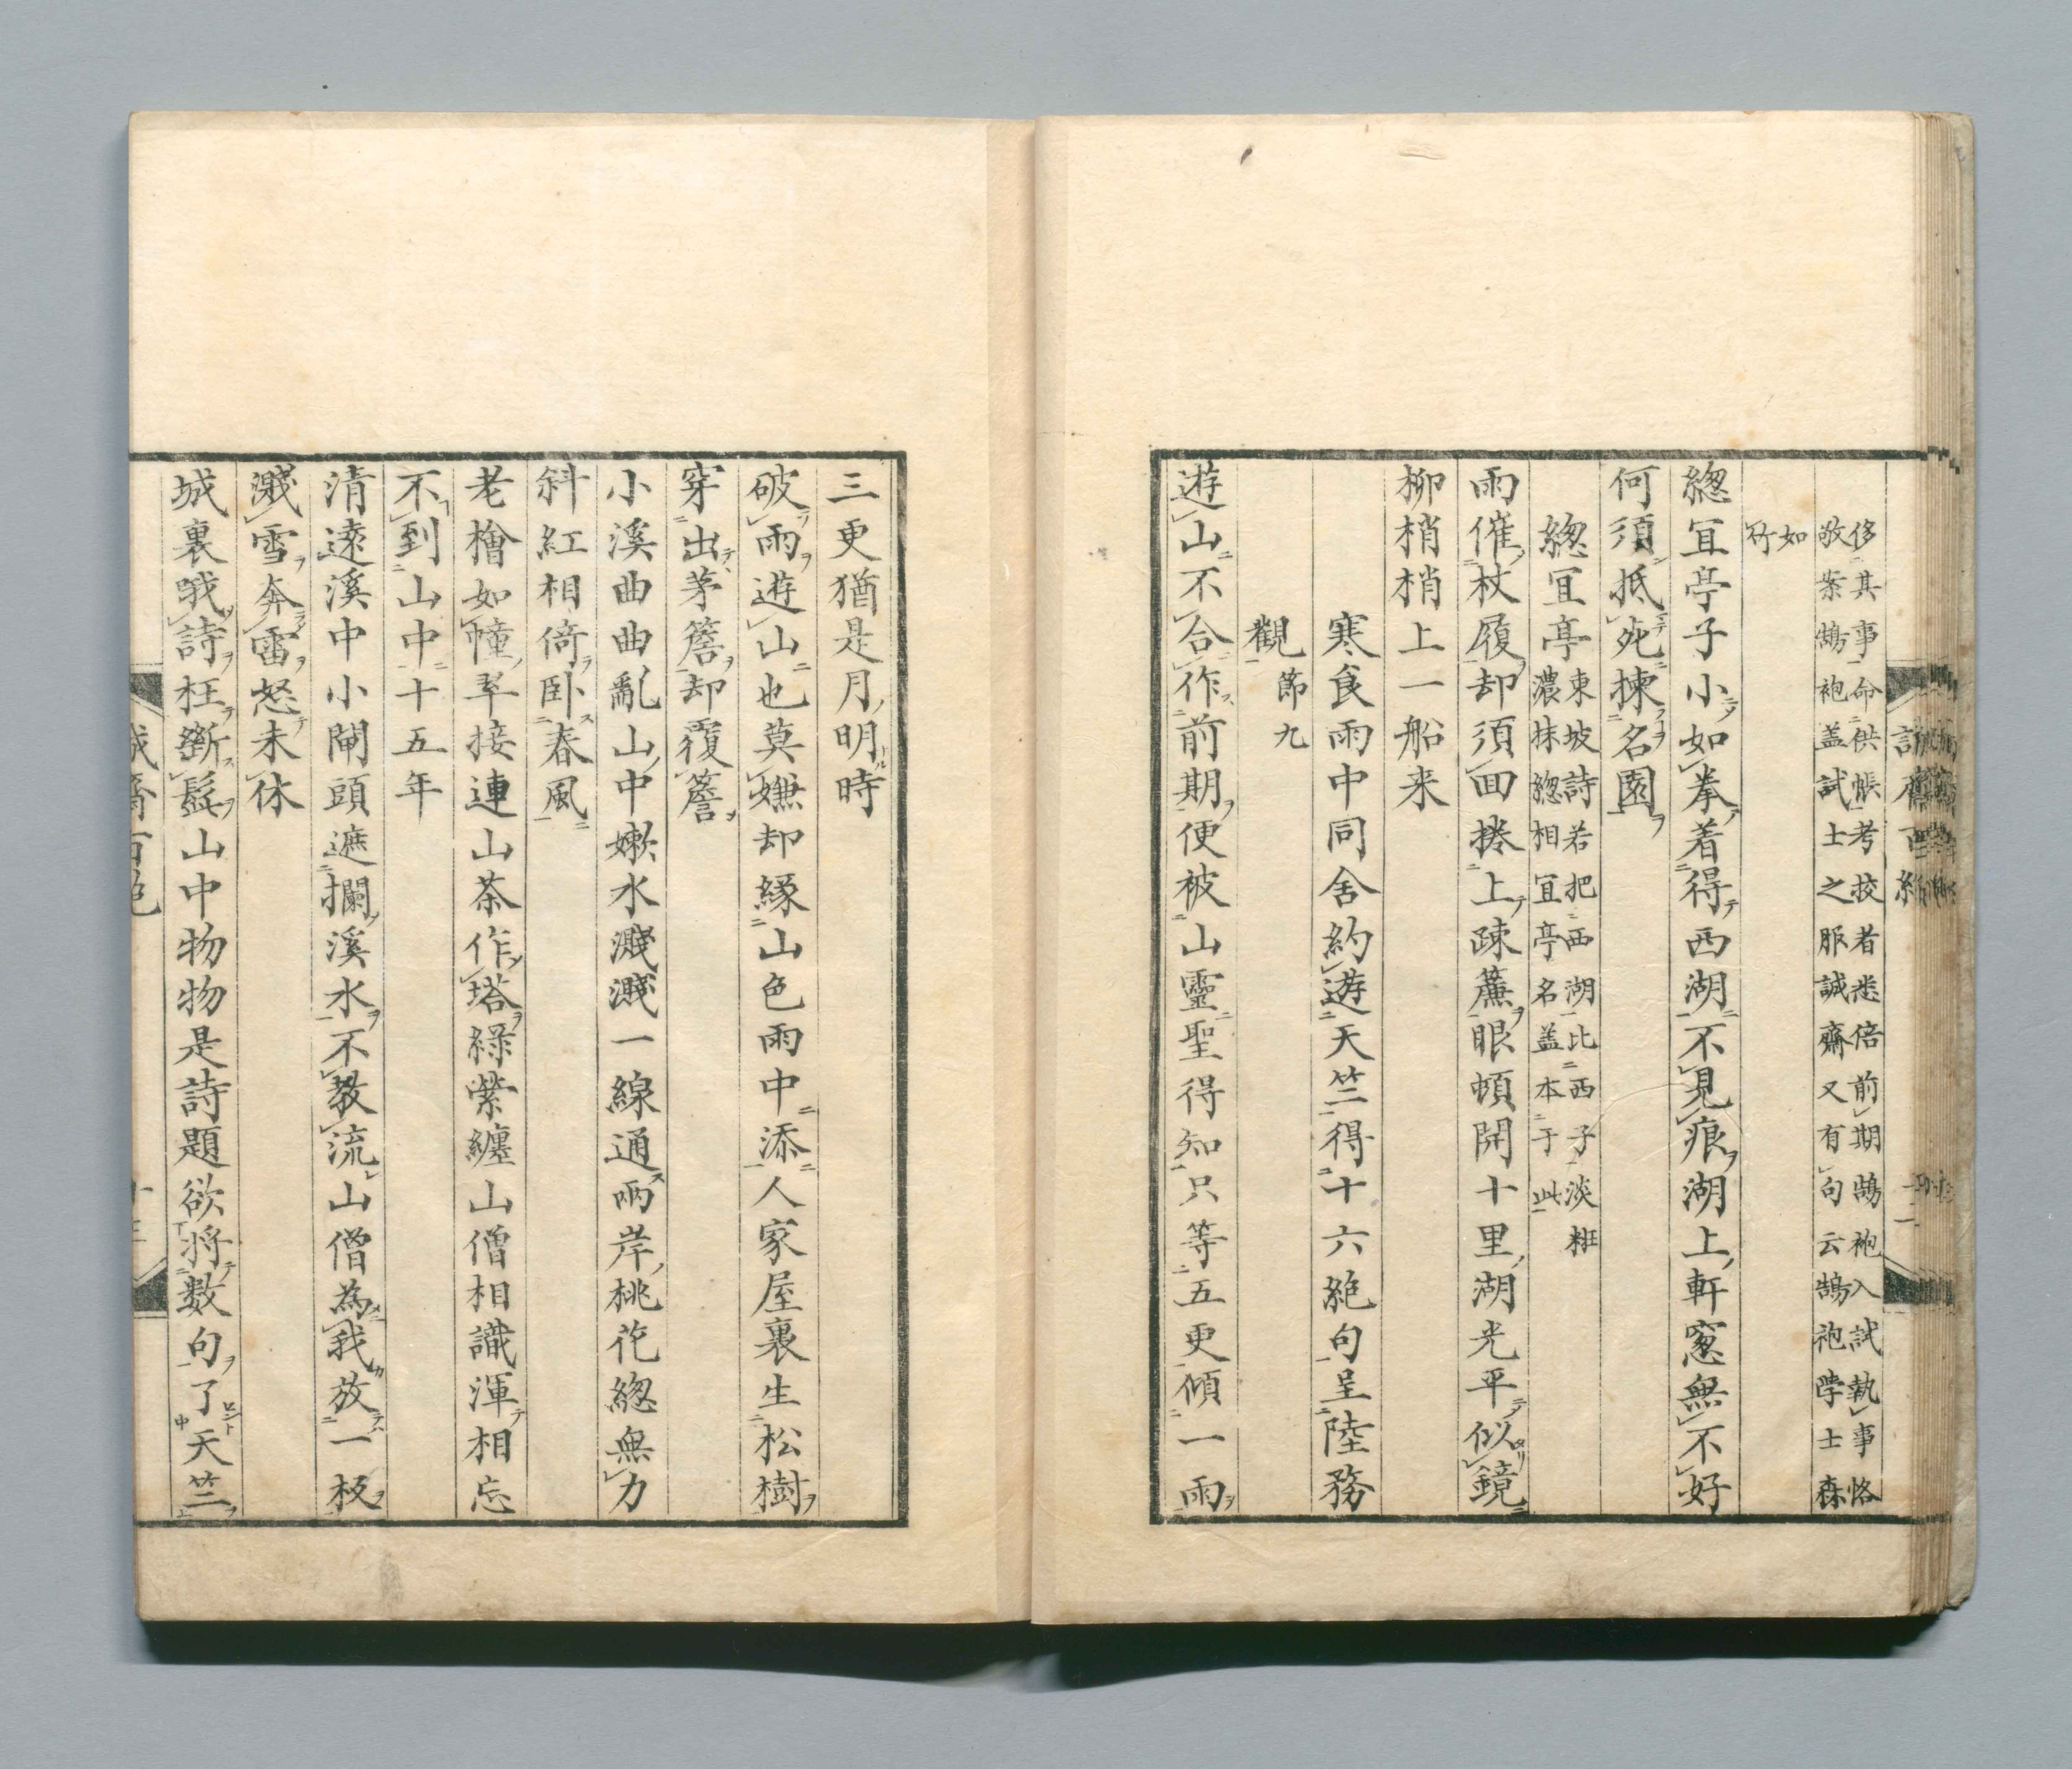 侈其事命供帳考挍者悉倍前期鵠袍入試執事恪
敬案鵠袍盖試士之服誠齋又有句云鵠袍學士森
如
竹
緫宜亭子小如拳着得西湖不見痕湖上軒窓無不好
何須抵死揀名園
緫宜亭
東坡詩若把西湖比西子淡粧
濃抹緫相宜亭名盖本于此
雨催杖履却須回捲上疎簾眼頓開十里湖光平似鏡
柳梢梢上一船来
寒食雨中同舍約遊天竺得十六絶句呈陸務
觀
節九
遊山不合作前期便被山靈聖得知只等五更傾一雨
三更猶是月明時
破雨遊山也莫嫌却縁山色雨中添人家屋裏生松樹
穿出茅簷却覆簷
小溪曲曲亂山中嫩水濺濺一線通兩岸桃花緫無力
斜紅相倚卧春風
老檜如幢翠接連山茶作塔緑縈纏山僧相識渾相忘
不到山中十五年
清遠溪中小閘頭遮攔溪水不教流山僧為我放一板
濺雪奔雷怒未休
城裏哦詩枉斷髭山中物物是詩題欲将数句了天竺